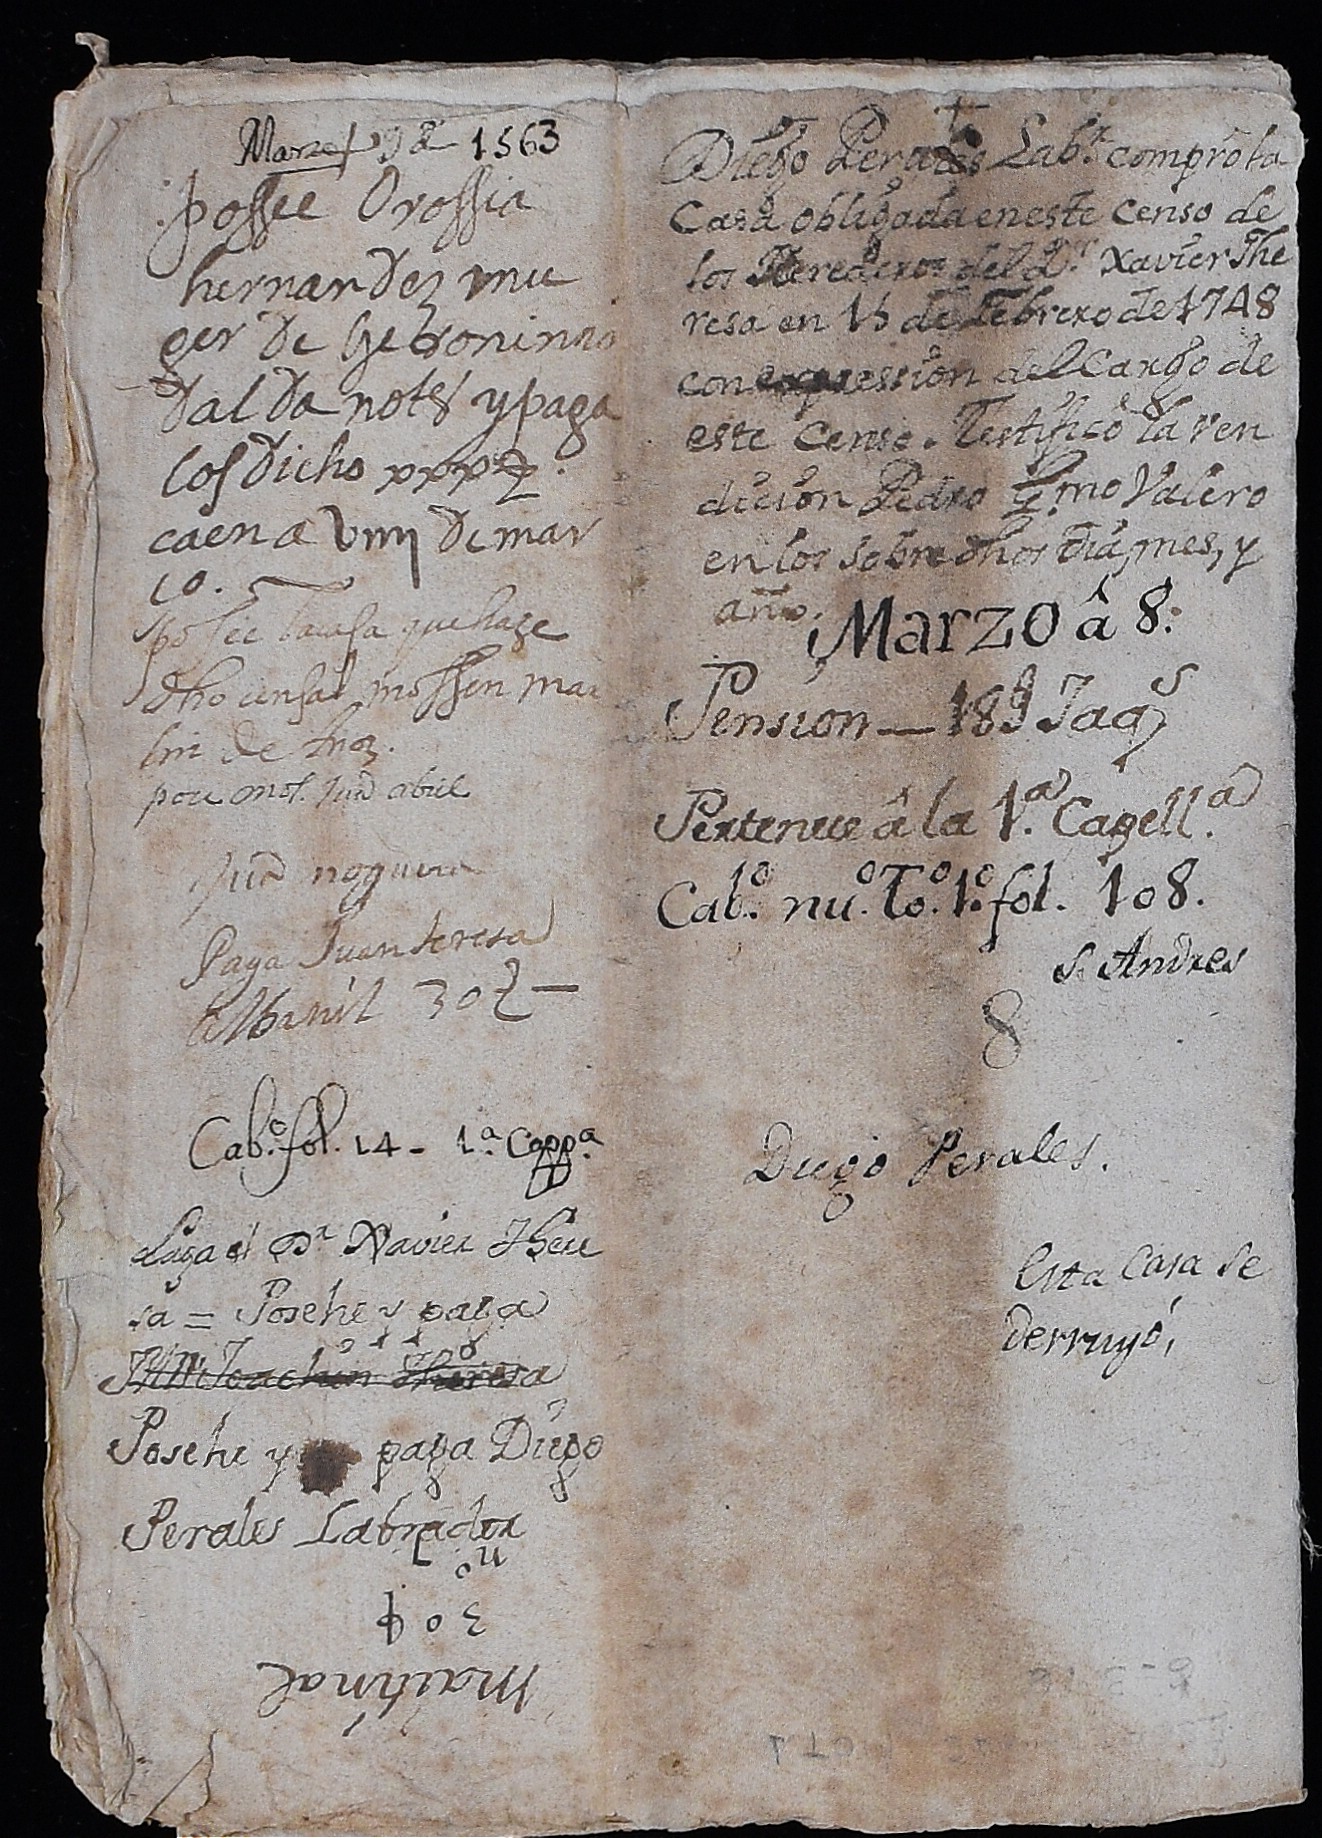 Marzo 9 1563
possee Orossia
hernandez mu
ger de Geronimo
dalda not⁠ ypaga
los dicho
caen a viiij de mar
zo.
posee la casa que haze
dho censal mossen mar
tin de
Jua noguera
Paga Juan teresa
albañil 30
Cab.º fol. 14 - 1.ª Capp.ª
Paga el Dr Xavier There
sa = Posehe y paga
Joachin Theresa
Posehe y paga Diego
Perales Labrador
nº
30
Diego Perales Lab.r compro la
Casa obligada en este censo de
los Herederos del D.r Xavier The
resa en 15 de Febrero de 1748
con expression del Cargo de
este censo. Testificò la ven
dicion Pedro Valero
en los sobre dhos dia, mes, y
año.
Marzo â 8:
Pension — 18 Jaqs
Pertenece â la 1.ª Capell.a
Cab.º nu.º To.º 1.º fol. 108.
S. Andres
8
Diego Perales.
Esta Casa se
derruyó,